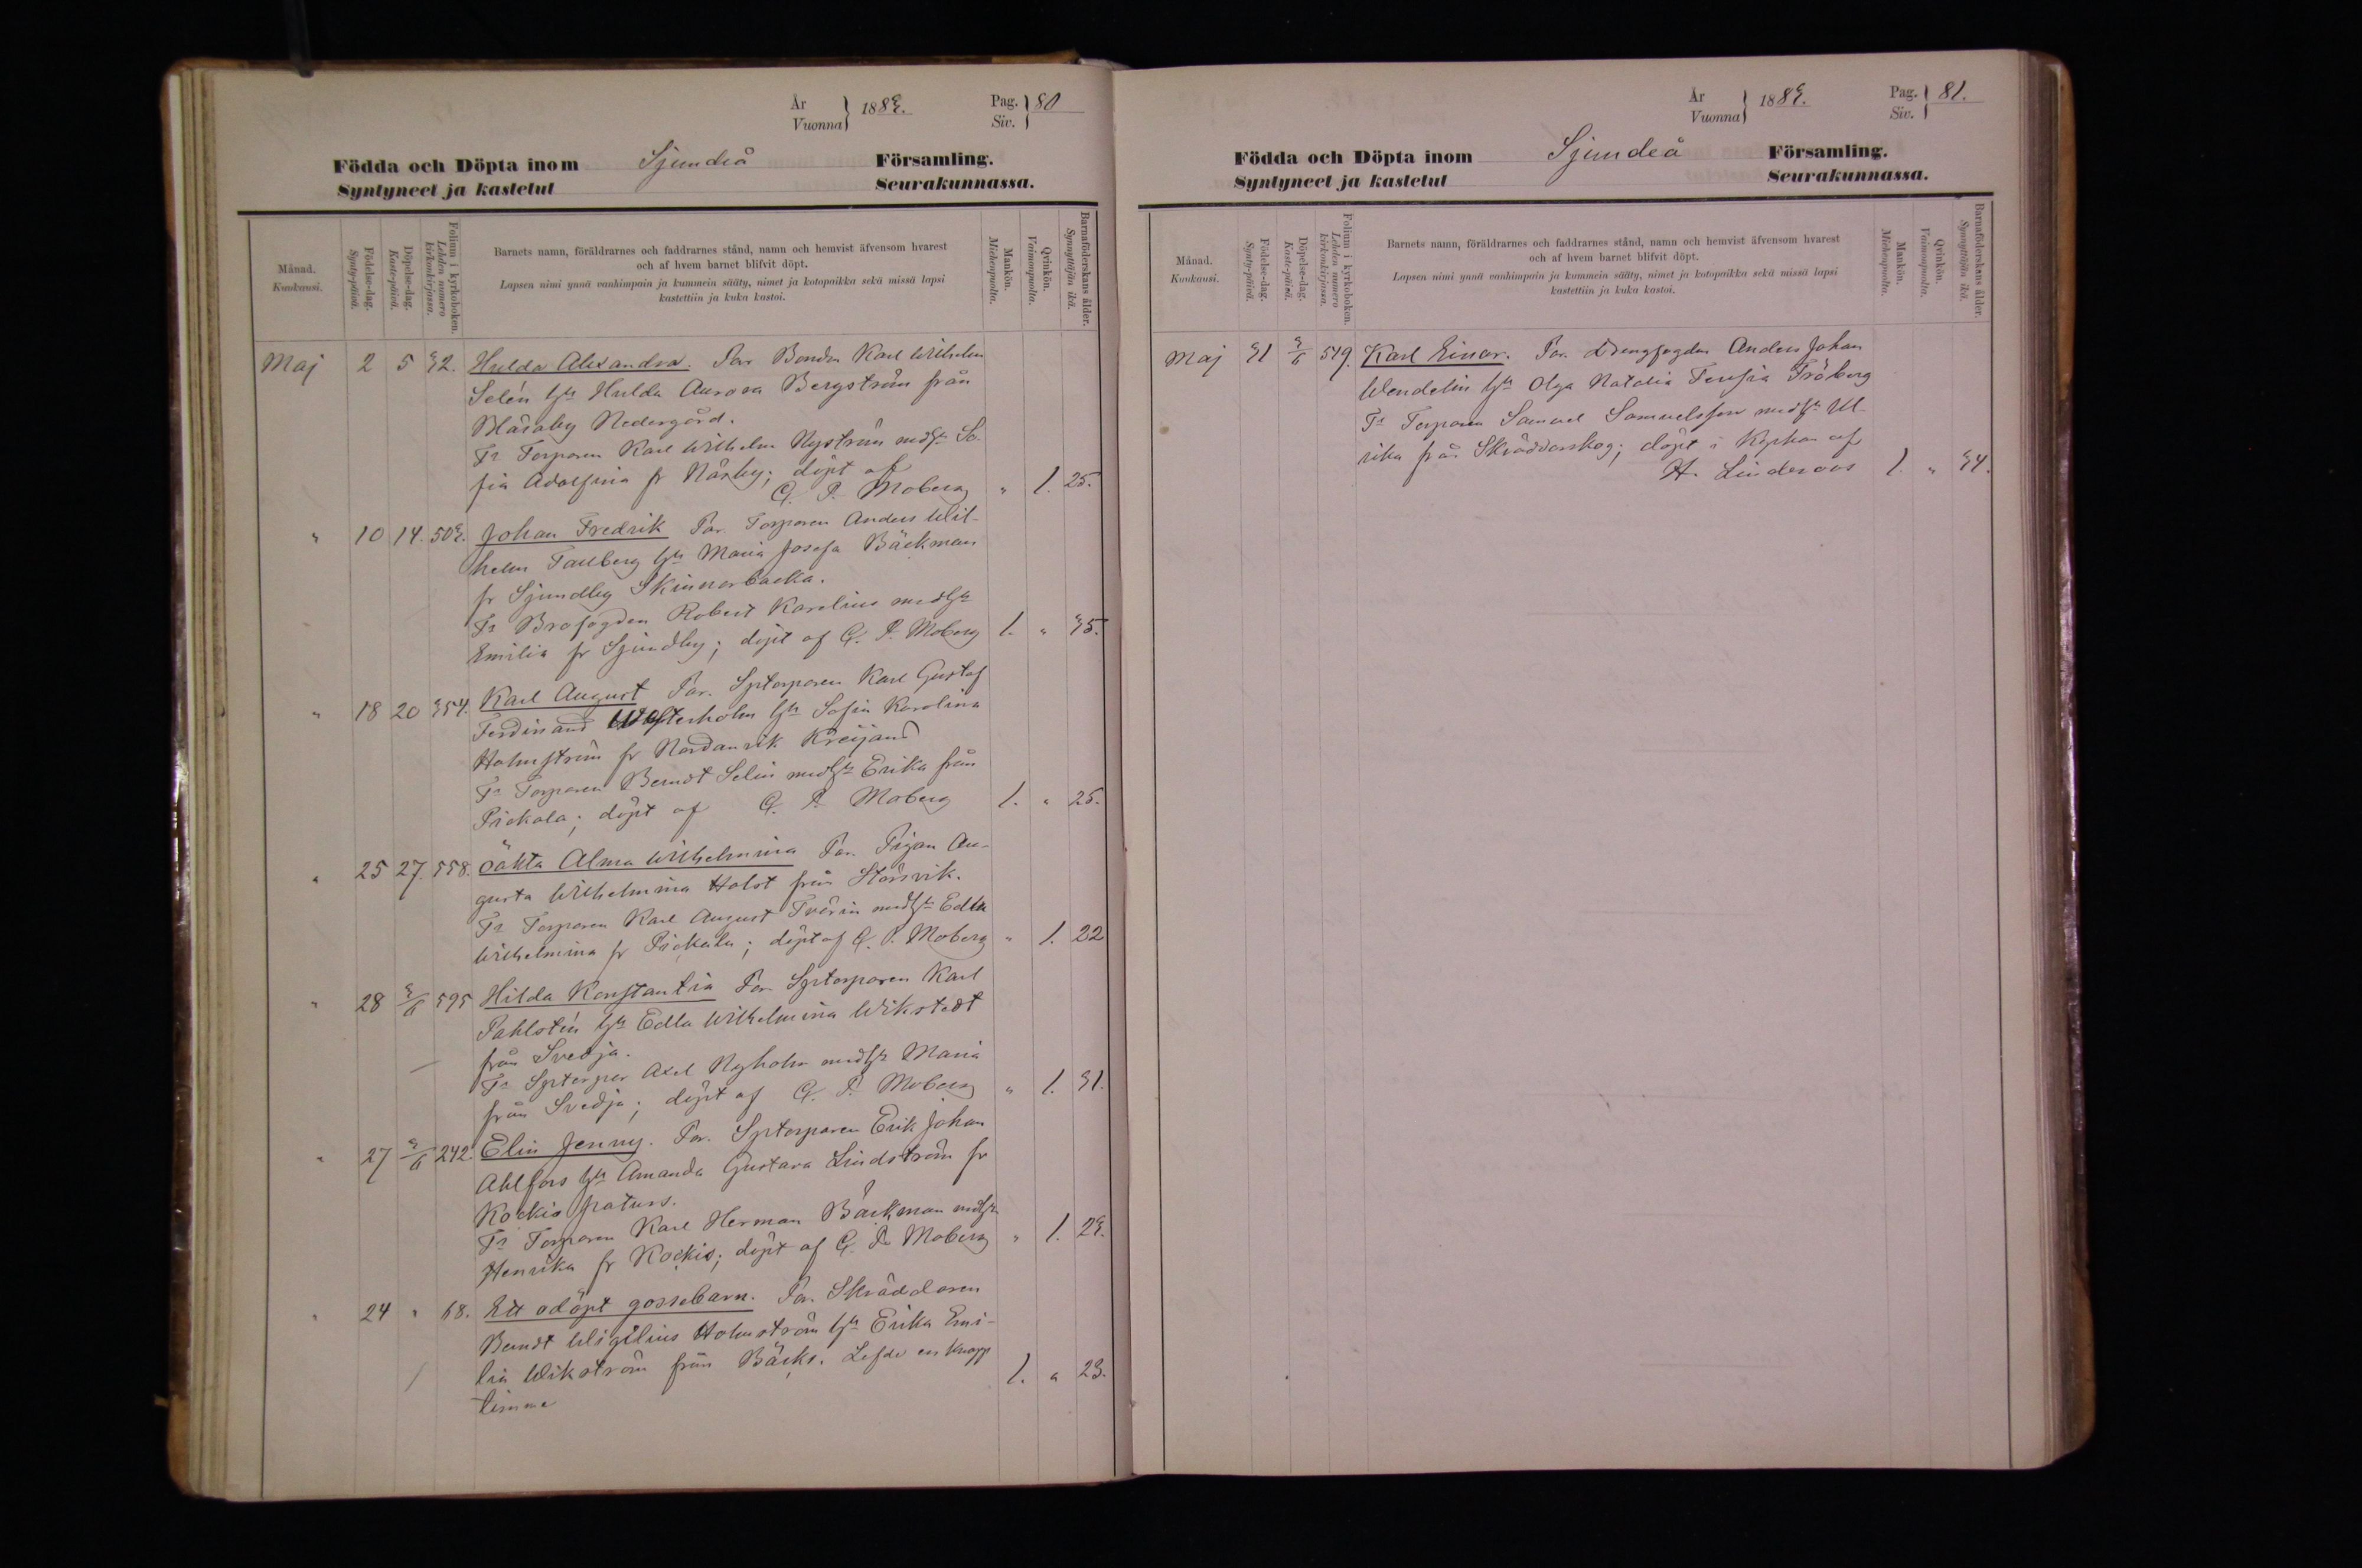 År
Vuonna } 1883. Pag. Siv. } 80
Födda och Döpta inom Sjundeå Församling.
Syntyneet ja kastetut Seurakunnassa.
Månad. Kuukausi.
Födelse-dag. Synty-päivä.
Döpelse-dag. Kaste-päivä.
Folium i kyrkoboken. Lehden numero kirkonkirjassa.
Barnets namn, föräldrarnes och faddrarnes stånd, namn och hemvist äfvensom hvarest
och af hvem barnet blifvit döpt.
Lapsen nimi ynnä vanhimpain ja kummein sääty, nimet ja kotopaikka sekä missä lapsi
kastettiin ja kuka kastoi.
Mankön. Miehenpuolta.
Qvinkön. Vaimonpuolta.
Barnaföderskans ålder. Synnyttäjän ikä.
Maj 2 5 32. Hulda Alexandra. Par Bonden Karl Wilhelm
Selén hu Hulda Aurora Bergström från
Blåsaby Nedergård.
Fr Torparen Karl Wilhelm Nyström med hu So-
fia Adolfina fr Nårby; döpt af
G. P. Moberg " 1. 25.
" 10 14. 503. Johan Fredrik Par. Torparen Anders Wil-
helm Tallberg hu Maria Josefa Bäckman
fr Sjundby Skinnarbacka.
Fr Brofogden Robert Karelius med hu
Emilia fr Sjundby; döpt af G. P. Moberg 1. " 35.
" 18 20 354. Karl August Par. Sptorparen Karl Gustaf
Ferdinand Westerholm hu Sofia Karolina
Holmström fr Nordanvik Kreijans
Fr Torparen Berndt Selin med hu Erika från
Pickala; döpt af G. P. Moberg 1. " 25.
" 25 27. 558. Oäkta Alma Wilhelmina Par. Pigan Au-
gusta Wilhelmina Holst från Störsvik.
Fr Torparen Karl August Tverin med hu Edla
Wilhelmina fr Pickala; döpt af G. P. Moberg " 1. 22
" 28 3/6 595 Hilda Konstantia Par Sptorparen Karl
Pahlstén hu Edla Wilhelmina Wikstedt
från Svedja.
Fr Sptorpar Axel Nyholm med hu Maria
från Svedja; döpt af G. P. Moberg " 1. 31.
" 27 3/6 242. Elin Jenny. Par. Sptorparen Erik Johan
Ahlfors hu Amanda Gustava Lindström fr
Kockis
Fr Torparen Karl Herman Bäckman med hu
Henrika fr Kockis; döpt af G. P. Moberg " 1. 23.
" 24 " 68. Ett odöpt gossebarn. Par. Skräddaren
Berndt Wigilius Holmström hu Erika Emi-
lia Wikström från Bäcks. Lefde en knapp
timme 1. " 23.
År
Vuonna } 1883. Pag. Siv. } 81.
Födda och Döpta inom Sjundeå Församling.
Syntyneet ja kastetut Seurakunnassa.
Månad. Kuukausi.
Födelse-dag. Synty-päivä.
Döpelse-dag. Kaste-päivä.
Folium i kyrkoboken. Lehden numero kirkonkirjassa.
Barnets namn, föräldrarnes och faddrarnes stånd, namn och hemvist äfvensom hvarest
och af hvem barnet blifvit döpt.
Lapsen nimi ynnä vanhimpain ja kummein sääty, nimet ja kotopaikka sekä missä lapsi
kastettiin ja kuka kastoi.
Mankön. Miehenpuolta.
Qvinkön. Vaimonpuolta.
Barnaföderskans ålder. Synnyttäjän ikä.
Maj 31 3/6 549. Karl Einar. Par. Drengfogden Anders Johan
Wendelin hu Olga Natalia Teresia Fröberg
Fr Torparen Samuel Samuelsson med hu Ul-
rika från Skräddarskog; döpt i Kyrkan af
A. Linderoos 1. " 34.